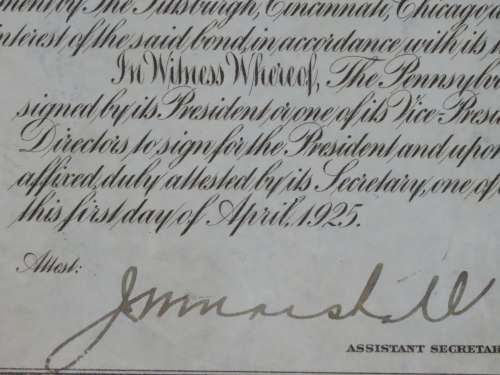 ment by The Pittsburgh, Cincinnati, Chicago, a
interest of the said bond, in accordance with its
In Witness Whereof, The Pennsylva
signed by its President or one of its Vice-Presid
Directors to sign for the President and upon
affixed, duly attested by its Secretary, one of
this first day of April, 1925.
Attest:
J M Marshall
ASSISTANT SECRETAR